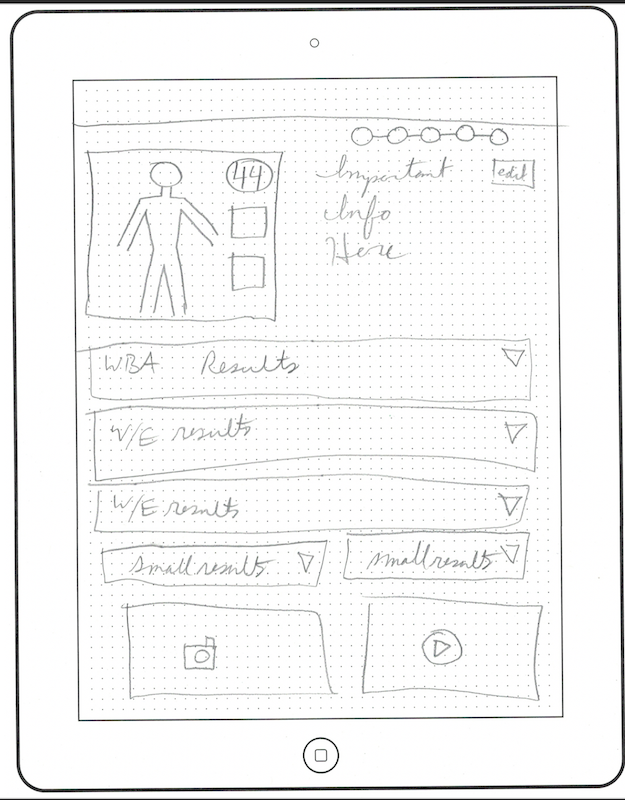 44
Important
edit
Info
Here
WBA Results
W/E results
W/E results
small results
small results